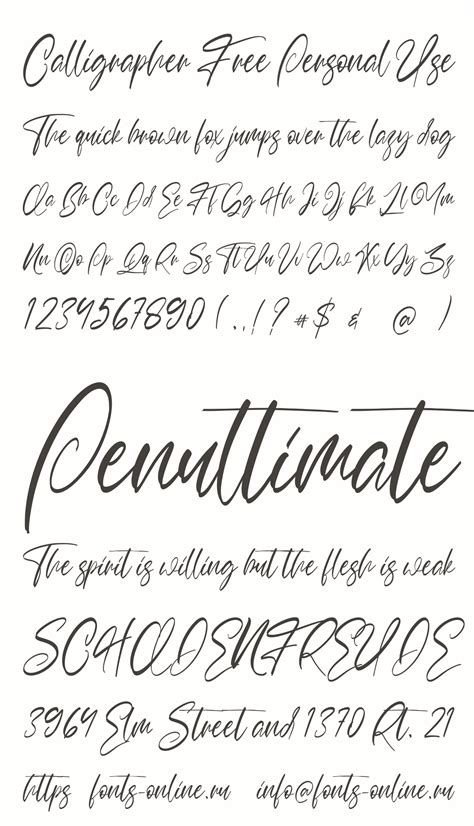 Calligrapher Free Personal Use
The quick brown fox jumps over the lazy dog
Aa Bb Cc Dd Ee Ff Gg Hh Ii Jj Kk Ll Mm
Nn Oo Pp Qq Rr Ss Tt Uu Vv Ww Xx Yy Zz
1234567890 (.,!? #$ & @ )
Penultimate
The spirit is willing but the flesh is weak
SCHADENFREUDE
3964 Elm Street and 1370 Rt. 21
https fonts-online.ru info@fonts-online.ru